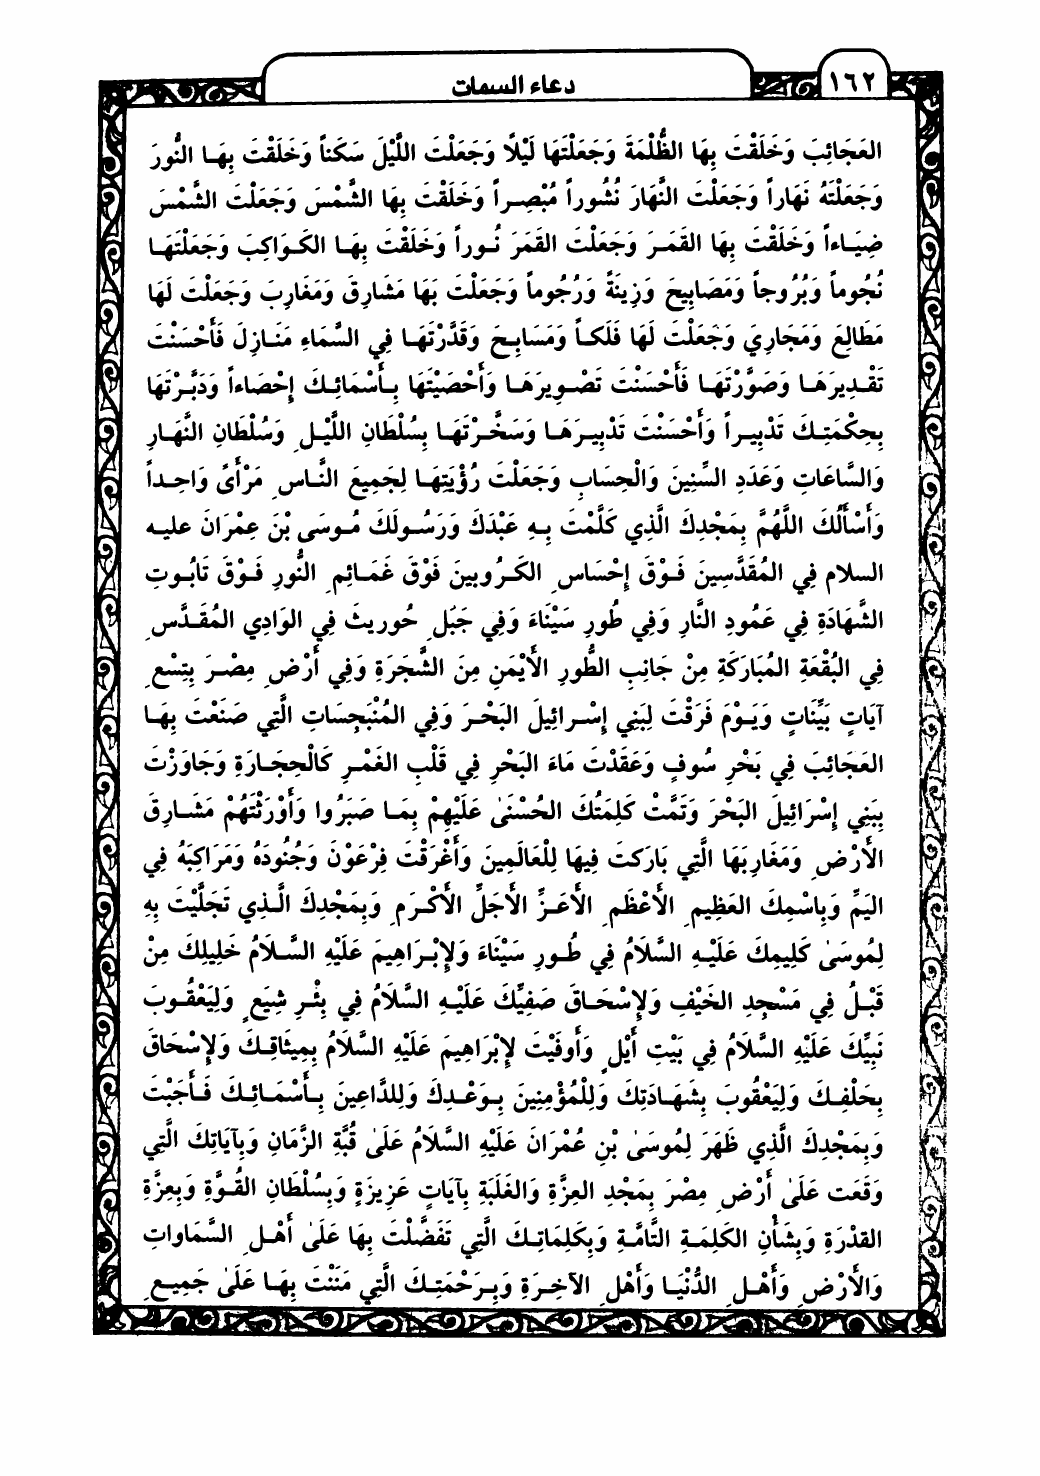 ١٦٢
دعاء السمات
العَجَائِبَ وَخَلَقْتَ بِهَا الظُّلْمَةَ وَجَعَلْتَهَا لَيْلاً وَجَعَلْتَ اللَّيْلَ سَكَناً وَخَلَقْتَ بِهَا النُّورَ
وَجَعَلْتَهُ نَهَاراً وَجَعَلْتَ النَّهَارَ نُشُوراً مُبْصِراً وَخَلَقْتَ بِهَا الشَّمْسَ وَجَعَلْتَ الشَّمْسَ
ضِيَاءاً وَخَلَقْتَ بِهَا القَمَرَ وَجَعَلْتَ القَمَرَ نُوراً وَخَلَقْتَ بِهَا الكَوَاكِبَ وَجَعَلْتَهَا
نُجُوماً وَبُرُوجاً وَمَصَابِيحَ وَزِينَةً وَرُجُوماً وَجَعَلْتَ بَهَا مَشَارِقَ وَمَغَارِبَ وَجَعَلْتَ لَهَا
مَطَالِعَ وَمَجَارِيَ وَجَعَلْتَ لَهَا فَلَكاً وَمَسَابِحَ وَقَدَّرْتَهَا فِي السَّمَاءِ مَنَازِلَ فَأَحْسَنْتَ
تَقْدِيرَهَا وَصَوَّرْتَهَا فَأَحْسَنْتَ تَصْوِيرَهَا وَأَحْصَيْتَهَا بِأَسْمَائِكَ إِحْصَاءاً وَدَبَّرْتَهَا
بِحِكْمَتِكَ تَدْبِيراً وَأَحْسَنْتَ تَدْبِيرَهَا وَسَخَّرْتَهَا بِسُلْطَانِ اللَّيْلِ وَسُلْطَانِ النَّهَارِ
وَالسَّاعَاتِ وَعَدَدِ السِّنِينَ وَالْحِسَابِ وَجَعَلْتَ رُؤْيَتِهَا لِجَمِيعَ النَّاسِ مَرْأىً وَاحِداً
وَأَسْأَلُكَ اللَّهُمَّ بِمَجْدِكَ الَّذِي كَلَّمْتَ بِهِ عَبْدَكَ وَرَسُولَكَ مُوسَى بْنَ عِمْرَانَ عليه
السلام فِي المُقَدَّسِينَ فَوْقَ إِحْسَاسِ الكَرُوبينَ فَوْقَ غَمَائِمِ النُّورِ فَوْقَ تَابُوتِ
الشَّهَادَةِ فِي عَمُودِ النَّارِ وَفِي طُورِ سَيْنَاءَ وَفِي جَبَلِ حُوريثَ فِي الوَادِي المُقَدَّسِ
فِي البُقْعَةِ المُبَارَكَةِ مِنْ جَانِبِ الطُّورِ الأَيْمَنِ مِنَ الشَّجَرَةِ وَفِي أَرْضِ مِصْرَ بِتِسْعِ
آيَاتٍ بَيِّنَاتٍ وَيَوْمَ فَرَقْتَ لِبَنِي إِسْرائِيلَ البَحْرَ وَفِي المُنْبَجِسَاتِ الَّتِي صَنَعْتَ بِهَا
العَجَائِبَ فِي بَحْرِ سُوفٍ وَعَقَدْتَ مَاءَ البَحْرِ فِي قَلْبِ الغَمْرِ كَالْحِجَارَةِ وَجَاوَزْتَ
بِبَنِي إِسْرَائِيلَ البَحْرَ وَتَمَّتْ كَلِمَتُكَ الحُسْنَىٰ عَلَيْهِمْ بِمَا صَبَرُوا وَأَوْرَثْتَهُمْ مَشَارِقَ
الأَرْضِ وَمَغَارِبَهَا الَّتِي بَارَكتَ فِيهَا لِلْعَالَمِينَ وَأَغْرَقْتَ فِرْعَوْنَ وَجُنُودَهُ وَمَرَاكِبَهُ فِي
اليَمِّ وَبِاسْمِكَ العَظِيمِ الأَعْظَمِ الأَعَزِّ الأَجَلِّ الأَكْرَمِ وَبِمَجْدِكَ الَّذِي تَجَلَّيْتَ بِهِ
لِمُوسَىٰ كَلِيمِكَ عَلَيْهِ السَّلاَمُ فِي طُورِ سَيْنَاءَ وَلإِبْرَاهِيمَ عَلَيْهِ السَّلاَمُ خَلِيلِكَ مِنْ
قَبْلُ فِي مَسْجِدِ الخَيْفِ وَلإِسْحَاقَ صَفِيِّكَ عَلَيْهِ السَّلاَمُ فِي بِئْرِ شِيَعٍ وَلِيَعْقُوبَ
نَبِيِّكَ عَلَيْهِ السَّلاَمُ فِي بَيْتِ أَيْلٍ وَأَوفَيْتَ لإِبْرَاهِيمَ عَلَيْهِ السَّلاَمُ بِمِيثَاقِكَ وَلإِسْحَاقَ
بِحَلْفِكَ وَلِيَعْقُوبَ بِشَهَادَتِكَ وَلِلْمُؤْمِنِينَ بِوَعْدِكَ وَلِلدَّاعِينَ بِأَسْمَائِكَ فَأَجَبْتَ
وَبِمَجْدِكَ الَّذِي ظَهَرَ لِمُوسَىٰ بْنِ عُمْرَانَ عَلَيْهِ السَّلاَمُ عَلَىٰ قُبَّةِ الزَّمَانِ وَبِآيَاتِكَ الَّتِي
وَقَعَت عَلَىٰ أَرْضِ مِصْرَ بِمَجْدِ العِزَّةِ وَالغَلَبَةِ بِآيَاتٍ عَزِيزَةٍ وَبِسُلْطَانِ القُوَّةِ وَبِعِزَّةِ
القدْرَةِ وَبِشَأْنِ الكَلِمَةِ التَّامَّةِ وَبِكَلِمَاتِكَ الَّتِي تَفَضَّلْتَ بِهَا عَلَىٰ أَهْلِ السَّمَاوَاتِ
وَالأَرْضِ وَأَهْلِ الدُّنْيَا وَأَهْلِ الآخِرَةِ وَبِرَحْمَتِكَ الَّتِي مَنَنْتَ بِهَا عَلَىٰ جَمِيعِ